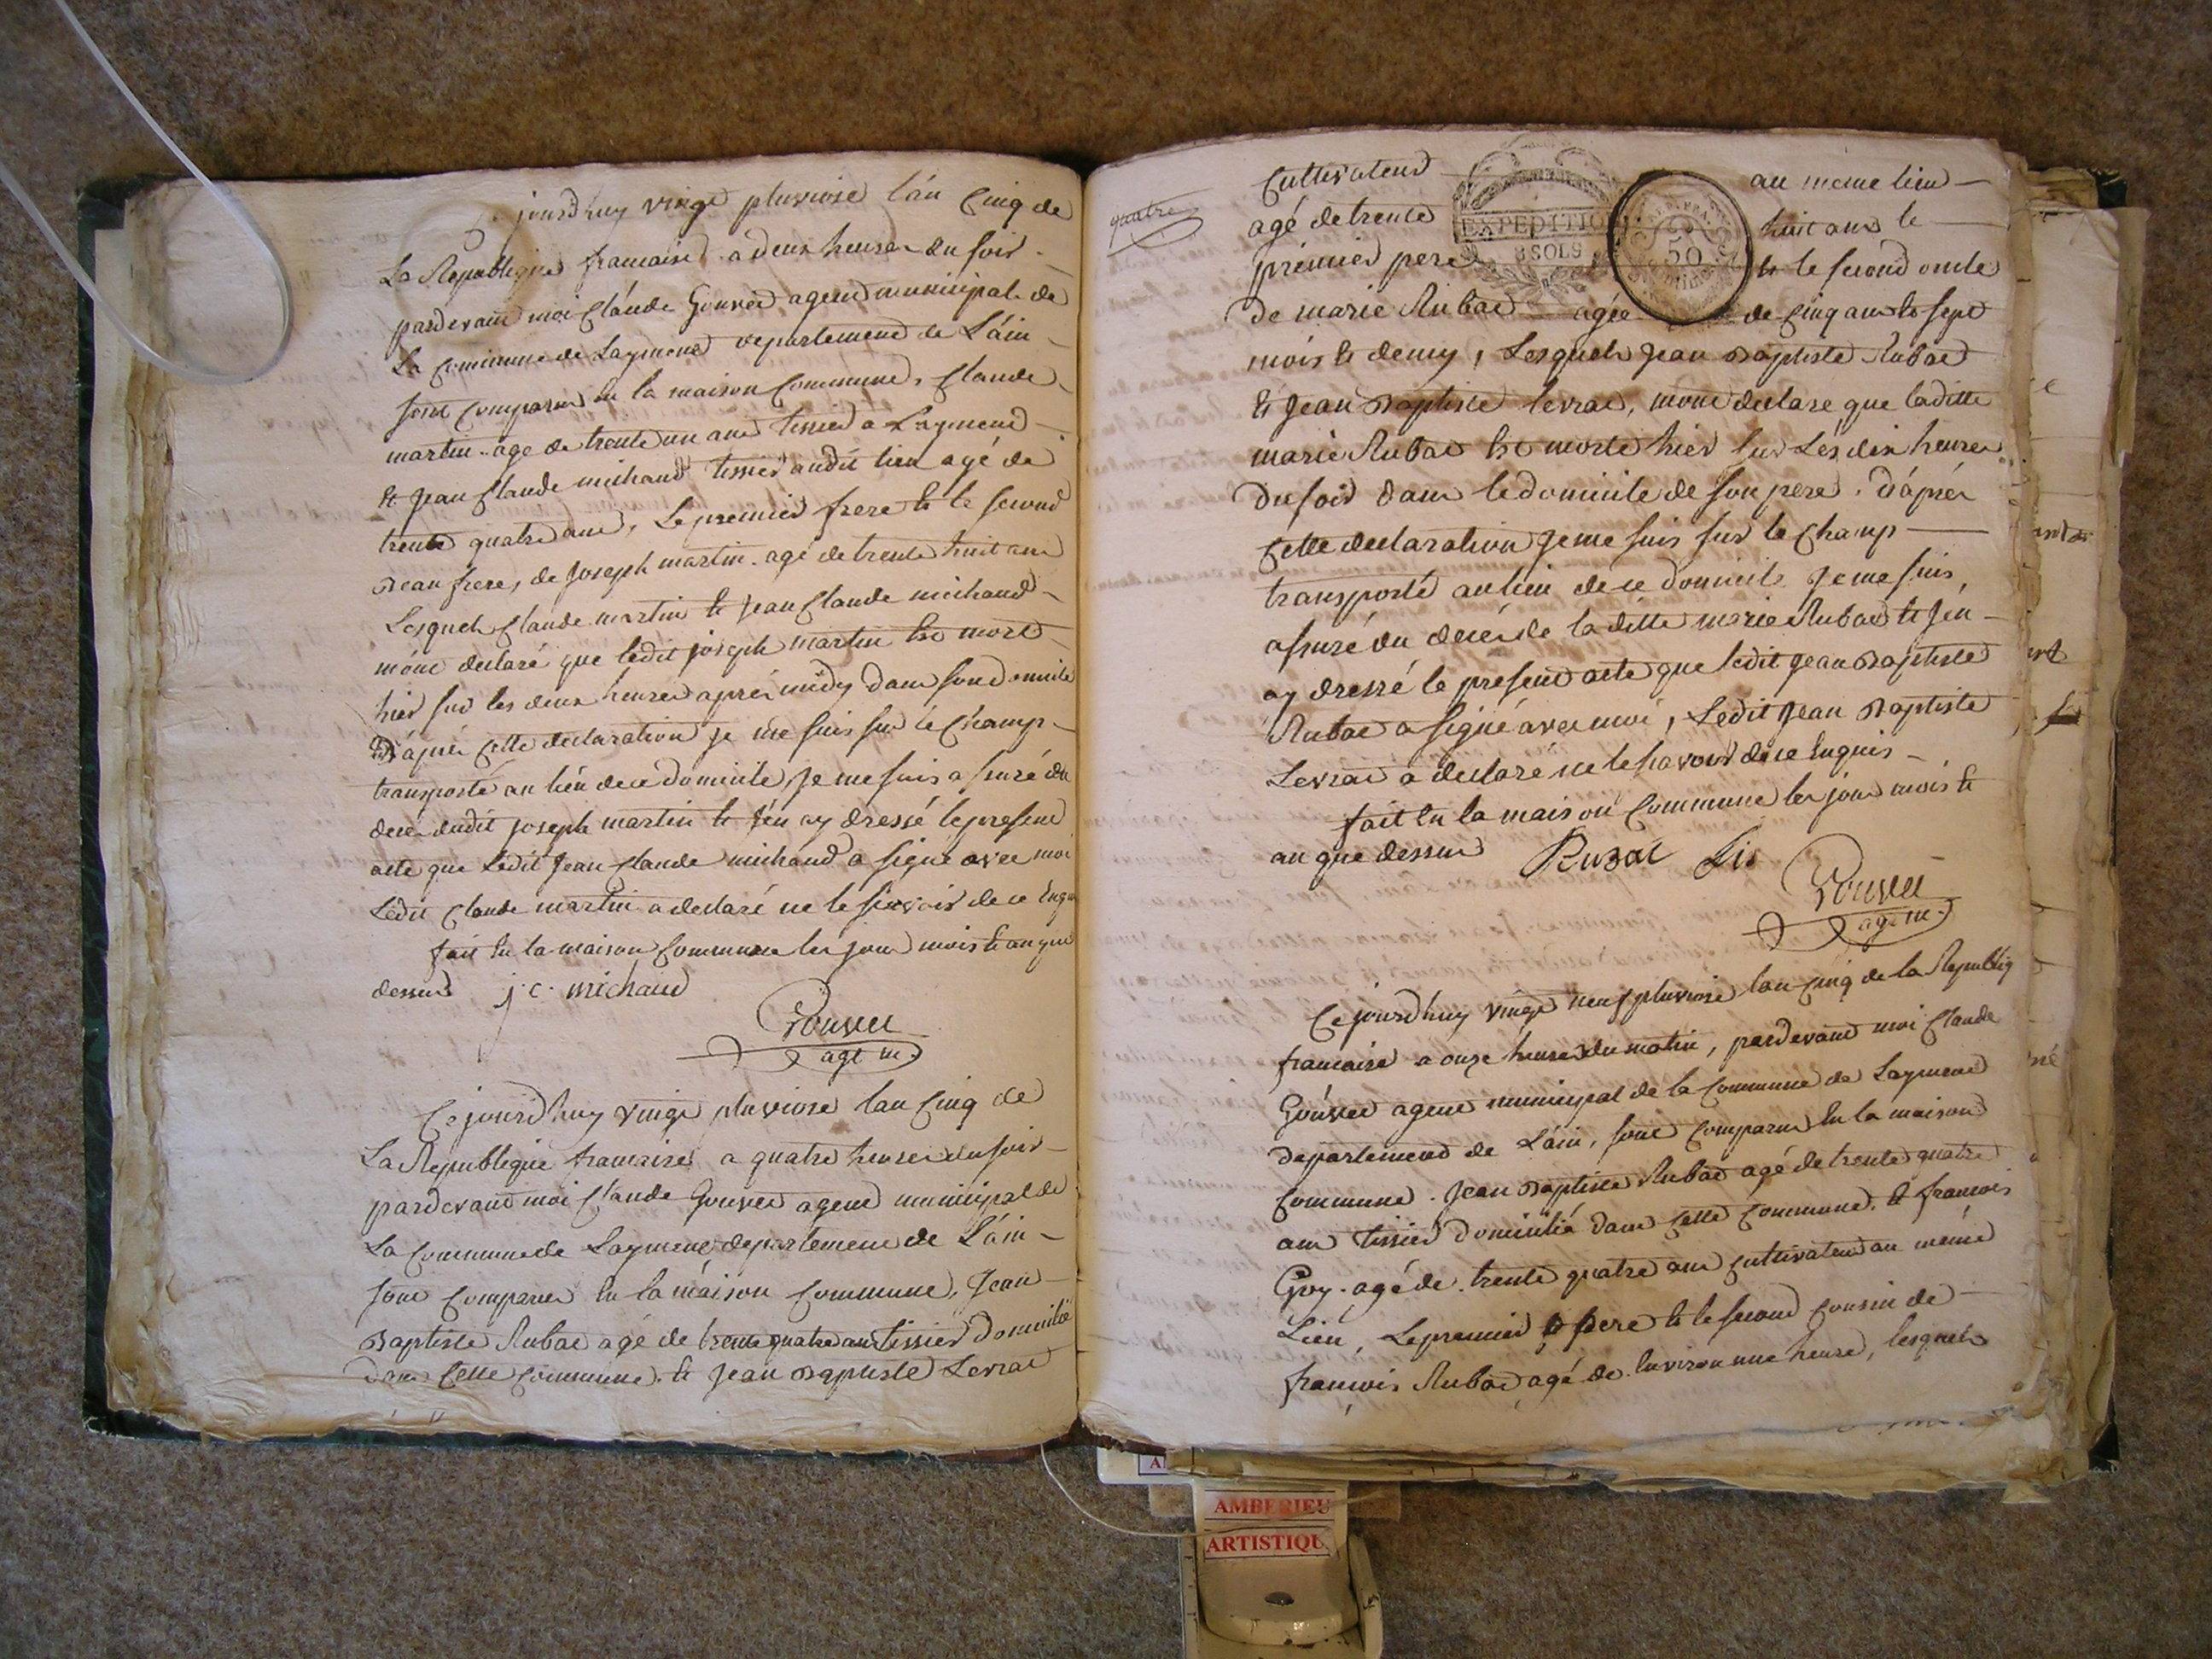 jourd'huy vingt pluviose l'an Cinq de
La Republique francaise a deux heures du soir
pardevant moi Claude Gouvee agent municipal de
La Commune de Laymene departement de L'ain
sont Comparus en la maison Commune, Claude
martin agé de trente un ans tissier a Laymene
et Jean Claude michaud tissier audit lieu agé de
trente quatre ans, Le premier frere et le second
Beau frere, de Joseph martin agé de trente huit ans
Lesquels Claude martin et Jean Claude michaud
m'ont declaré que ledit joseph martin est mort
hier sur les deux heures aprés midy dans son domicile
D'aprés Cette declaration je me suis sur le Champ
transporté au lieu de ce domicile, je me suis assuré du
decés dudit joseph martin et j'en ay dressé le present
acte que Ledit Jean Claude michaud a signé avec moi
Ledit Claude martin a declaré ne le scavoir de ce Enquis
fait en la maison Commune les jour mois et an que
dessus j. c. michaud
Gouvee
agt m.
Ce jourd'huy vingt pluviose l'an Cinq de
La Republique francaise a quatre heures du soir
pardevant moi Claude Gouvee agent municipal de
La Commune de Laymene departement de L'ain
sont Comparus en la maison Commune, Jean
Baptiste Rubat agé de trente quatre ans tissier domicilié
dans Cette Commune et Jean Baptiste Levrat
quatre
Cultivateur au meme lieu
agé de trente huit ans le
premier pere et le second oncle
EXPEDITION
3 SOLS
50
de marie Rubat agée de Cinq ans et sept
mois et demy, Lesquels Jean Baptiste Rubat
et Jean Baptiste levrat, m'ont declaré que laditte
marie Rubat est morte hier sur Les dix heures
du soir dans le domicile de son pere. D'aprés
Cette declaration Je me suis sur le Champ
transporté au lieu de ce domicile Je me suis
assuré du decés de laditte marie Rubat et j'en
ay dressé le present acte que ledit Jean Baptiste
Rubat a signé avec moi, Ledit Jean Baptiste
Levrat a declaré ne le scavoir de ce Enquis
fait en la maison Commune les jour mois et
an que dessus Rubat
Gouvee
agt m.
Ce jourd'huy vingt neuf pluviose l'an Cinq de la Republiq
francaise a onze heures du matin, pardevant moi Claude
Gouvee agent municipal de la Commune de Laymene
departement de L'ain, sont Comparus En la maison
Commune. Jean Baptiste Rubat agé de trente quatre
ans tissier domicilié dans Cette Commune, et francois
Guy agé de trente quatre ans Cultivateur au même
Lieu, Le premier pere et le second Cousin de
francois Rubat agé de Environ une heure, lesquels
AMBERIEU
ARTISTIQU